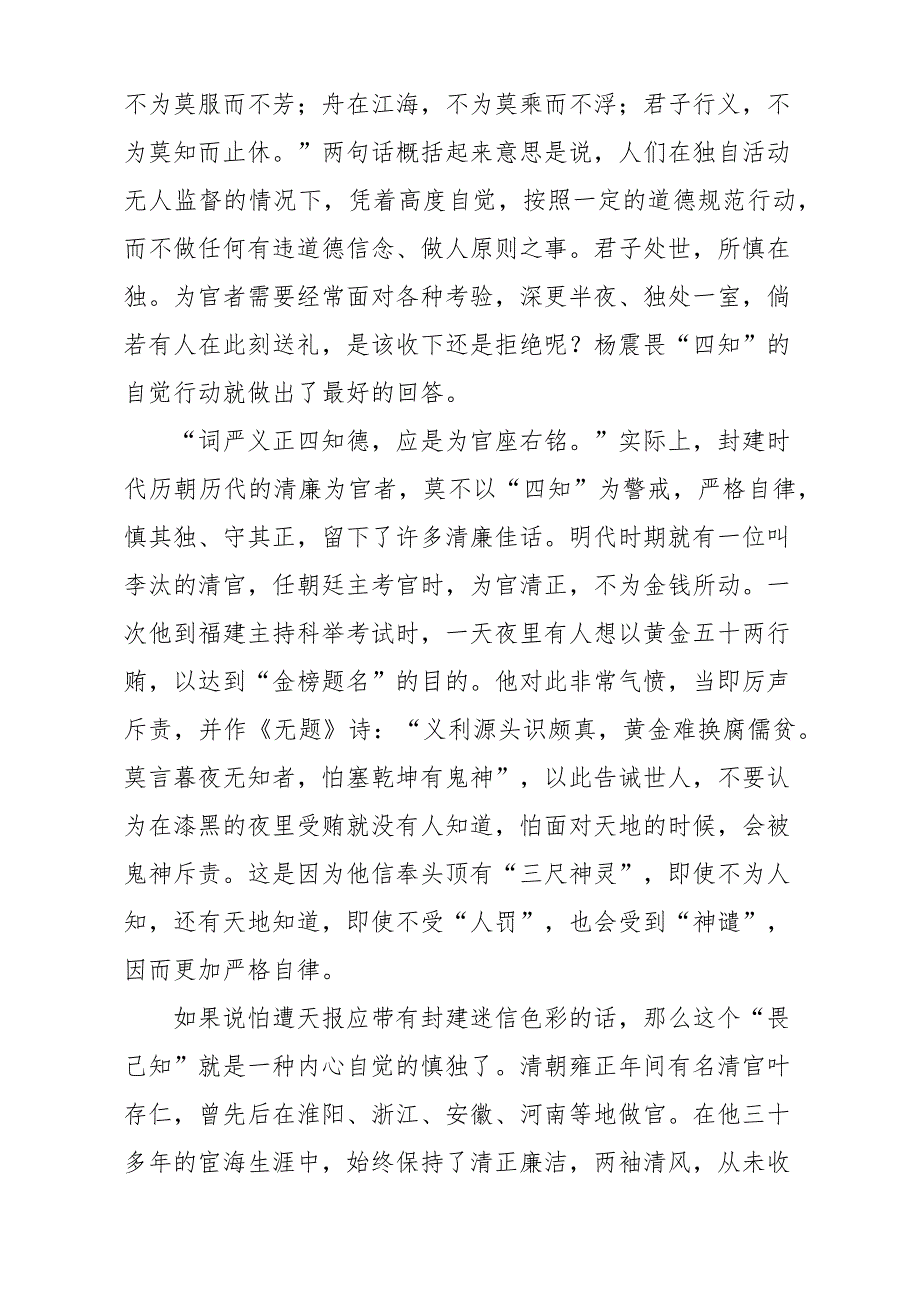 不为莫服而不芳；舟在江海，不为莫乘而不浮；君子行义，不
为莫知而止休。”两句话概括起来意思是说，人们在独自活动
无人监督的情况下，凭着高度自觉，按照一定的道德规范行动，
而不做任何有违道德信念、做人原则之事。君子处世，所慎在
独。为官者需要经常面对各种考验，深更半夜、独处一室，倘
若有人在此刻送礼，是该收下还是拒绝呢？杨震畏“四知”的
自觉行动就做出了最好的回答。
“词严义正四知德，应是为官座右铭。”实际上，封建时
代历朝历代的清廉为官者，莫不以“四知”为警戒，严格自律，
慎其独、守其正，留下了许多清廉佳话。明代时期就有一位叫
李汰的清官，任朝廷主考官时，为官清正，不为金钱所动。一
次他到福建主持科举考试时，一天夜里有人想以黄金五十两行
贿，以达到“金榜题名”的目的。他对此非常气愤，当即厉声
斥责，并作《无题》诗：“义利源头识颇真，黄金难换腐儒贫。
莫言暮夜无知者，怕塞乾坤有鬼神”，以此告诫世人，不要认
为在漆黑的夜里受贿就没有人知道，怕面对天地的时候，会被
鬼神斥责。这是因为他信奉头顶有“三尺神灵”，即使不为人
知，还有天地知道，即使不受“人罚”，也会受到“神谴”，
因而更加严格自律。
如果说怕遭天报应带有封建迷信色彩的话，那么这个“畏
己知”就是一种内心自觉的慎独了。清朝雍正年间有名清官叶
存仁，曾先后在淮阳、浙江、安徽、河南等地做官。在他三十
多年的宦海生涯中，始终保持了清正廉洁，两袖清风，从未收